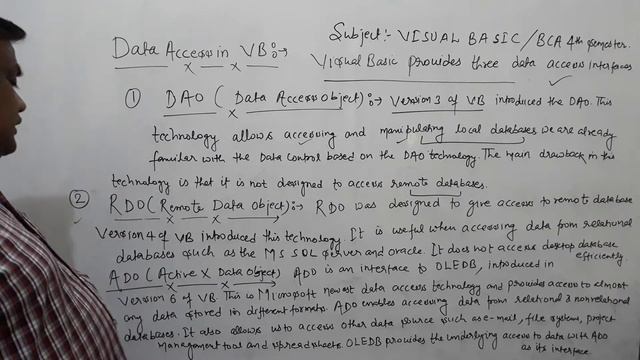 Subject:- VISUAL BASIC/BCA 4th semester.
Data Access in VB:→
Visual Basic provides three data access interfaces
① DAO (Data Access Object):→ Version 3 of VB introduced the DAO. This
technology allows accessing and manipulating local databases we are already
familer with the Data Control based on the DAO technology. The main drawback in this
technology is that it is not designed to access remote databases.
② RDO (Remote Data Object):→ RDO was designed to give access to remote database
Version 4 of VB introduced this technology It is useful when accessing data from relational
databases such as the MS SQL server and oracle It does not access desktop database
efficiently.
ADO (Active X Data Object) ADO is an interface to OLEDB, introduced in
Version 6 of VB. This is Microsoft newest data access technology and provides access to almost
any data stored in different formats. ADO enables accessing data from relational & nonrelational
databases. It also allows us to access other data source such as e-mail, file systems, project
management tools and spreadsheets. OLEDB provides the underlying access to data with ADO
as its interface.